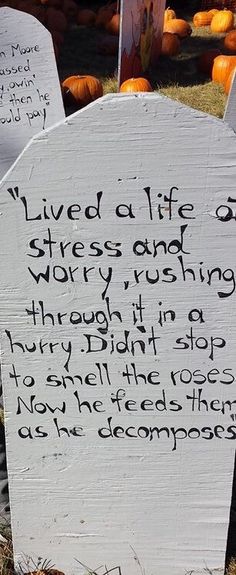 n Moore
assed
y owin'
then he
ould pay"
"Lived a life o
stress and
worry, rushing
through it in a
hurry. Didn't stop
to smell the roses
Now he feeds them
as he decomposes